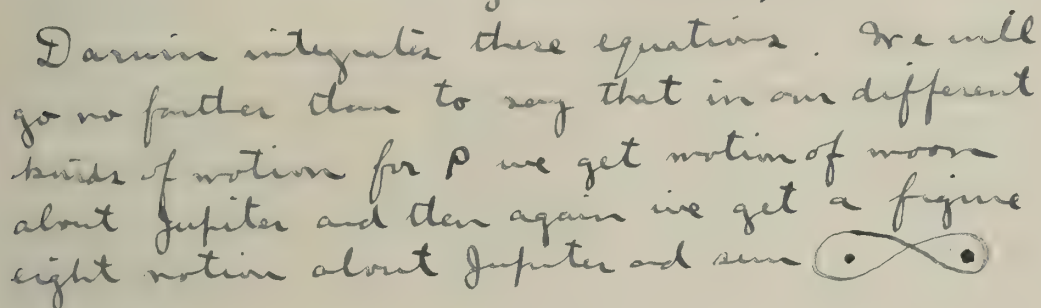 Darwin integrates these equations. We will
go no farther than to say that in our different
kinds of motion for P we get motion of moon
about Jupiter and then again we get a figure
eight motion about Jupiter and sun